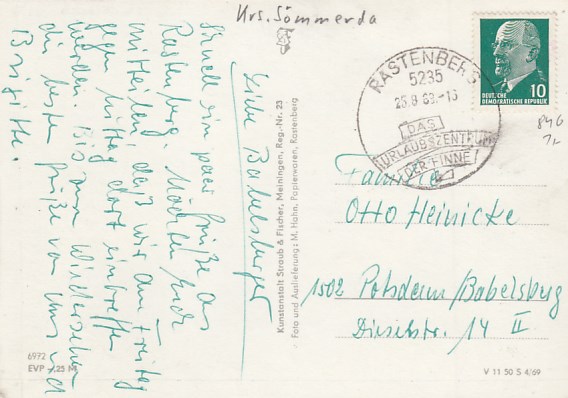 Krs. Sömmerda
Liebe Babelsberger
schnell ein paar Grüße aus
Rastenberg. Möchten Euch
mitteilen, daß wir am Freitag
gegen Mittag dort eintreffen
werden. Bis zum Wiedersehen
die besten Grüße von uns
Brigitte.
Kunstanstalt Straub & Fischer, Meiningen, Reg.-Nr. 23
Foto und Auslieferung: M. Hahn, Papierwaren, Rastenberg
6972
EVP -,25 M
RASTENBERG
5235
DAS
URLAUBSZENTRUM
DER FINNE!
DEUTSCHE
DEMOKRATISCHE REPUBLIK
10
Familie
Otto Heinicke
1502 Potsdam/Babelsberg
14 II
V 11 50 S 4/69